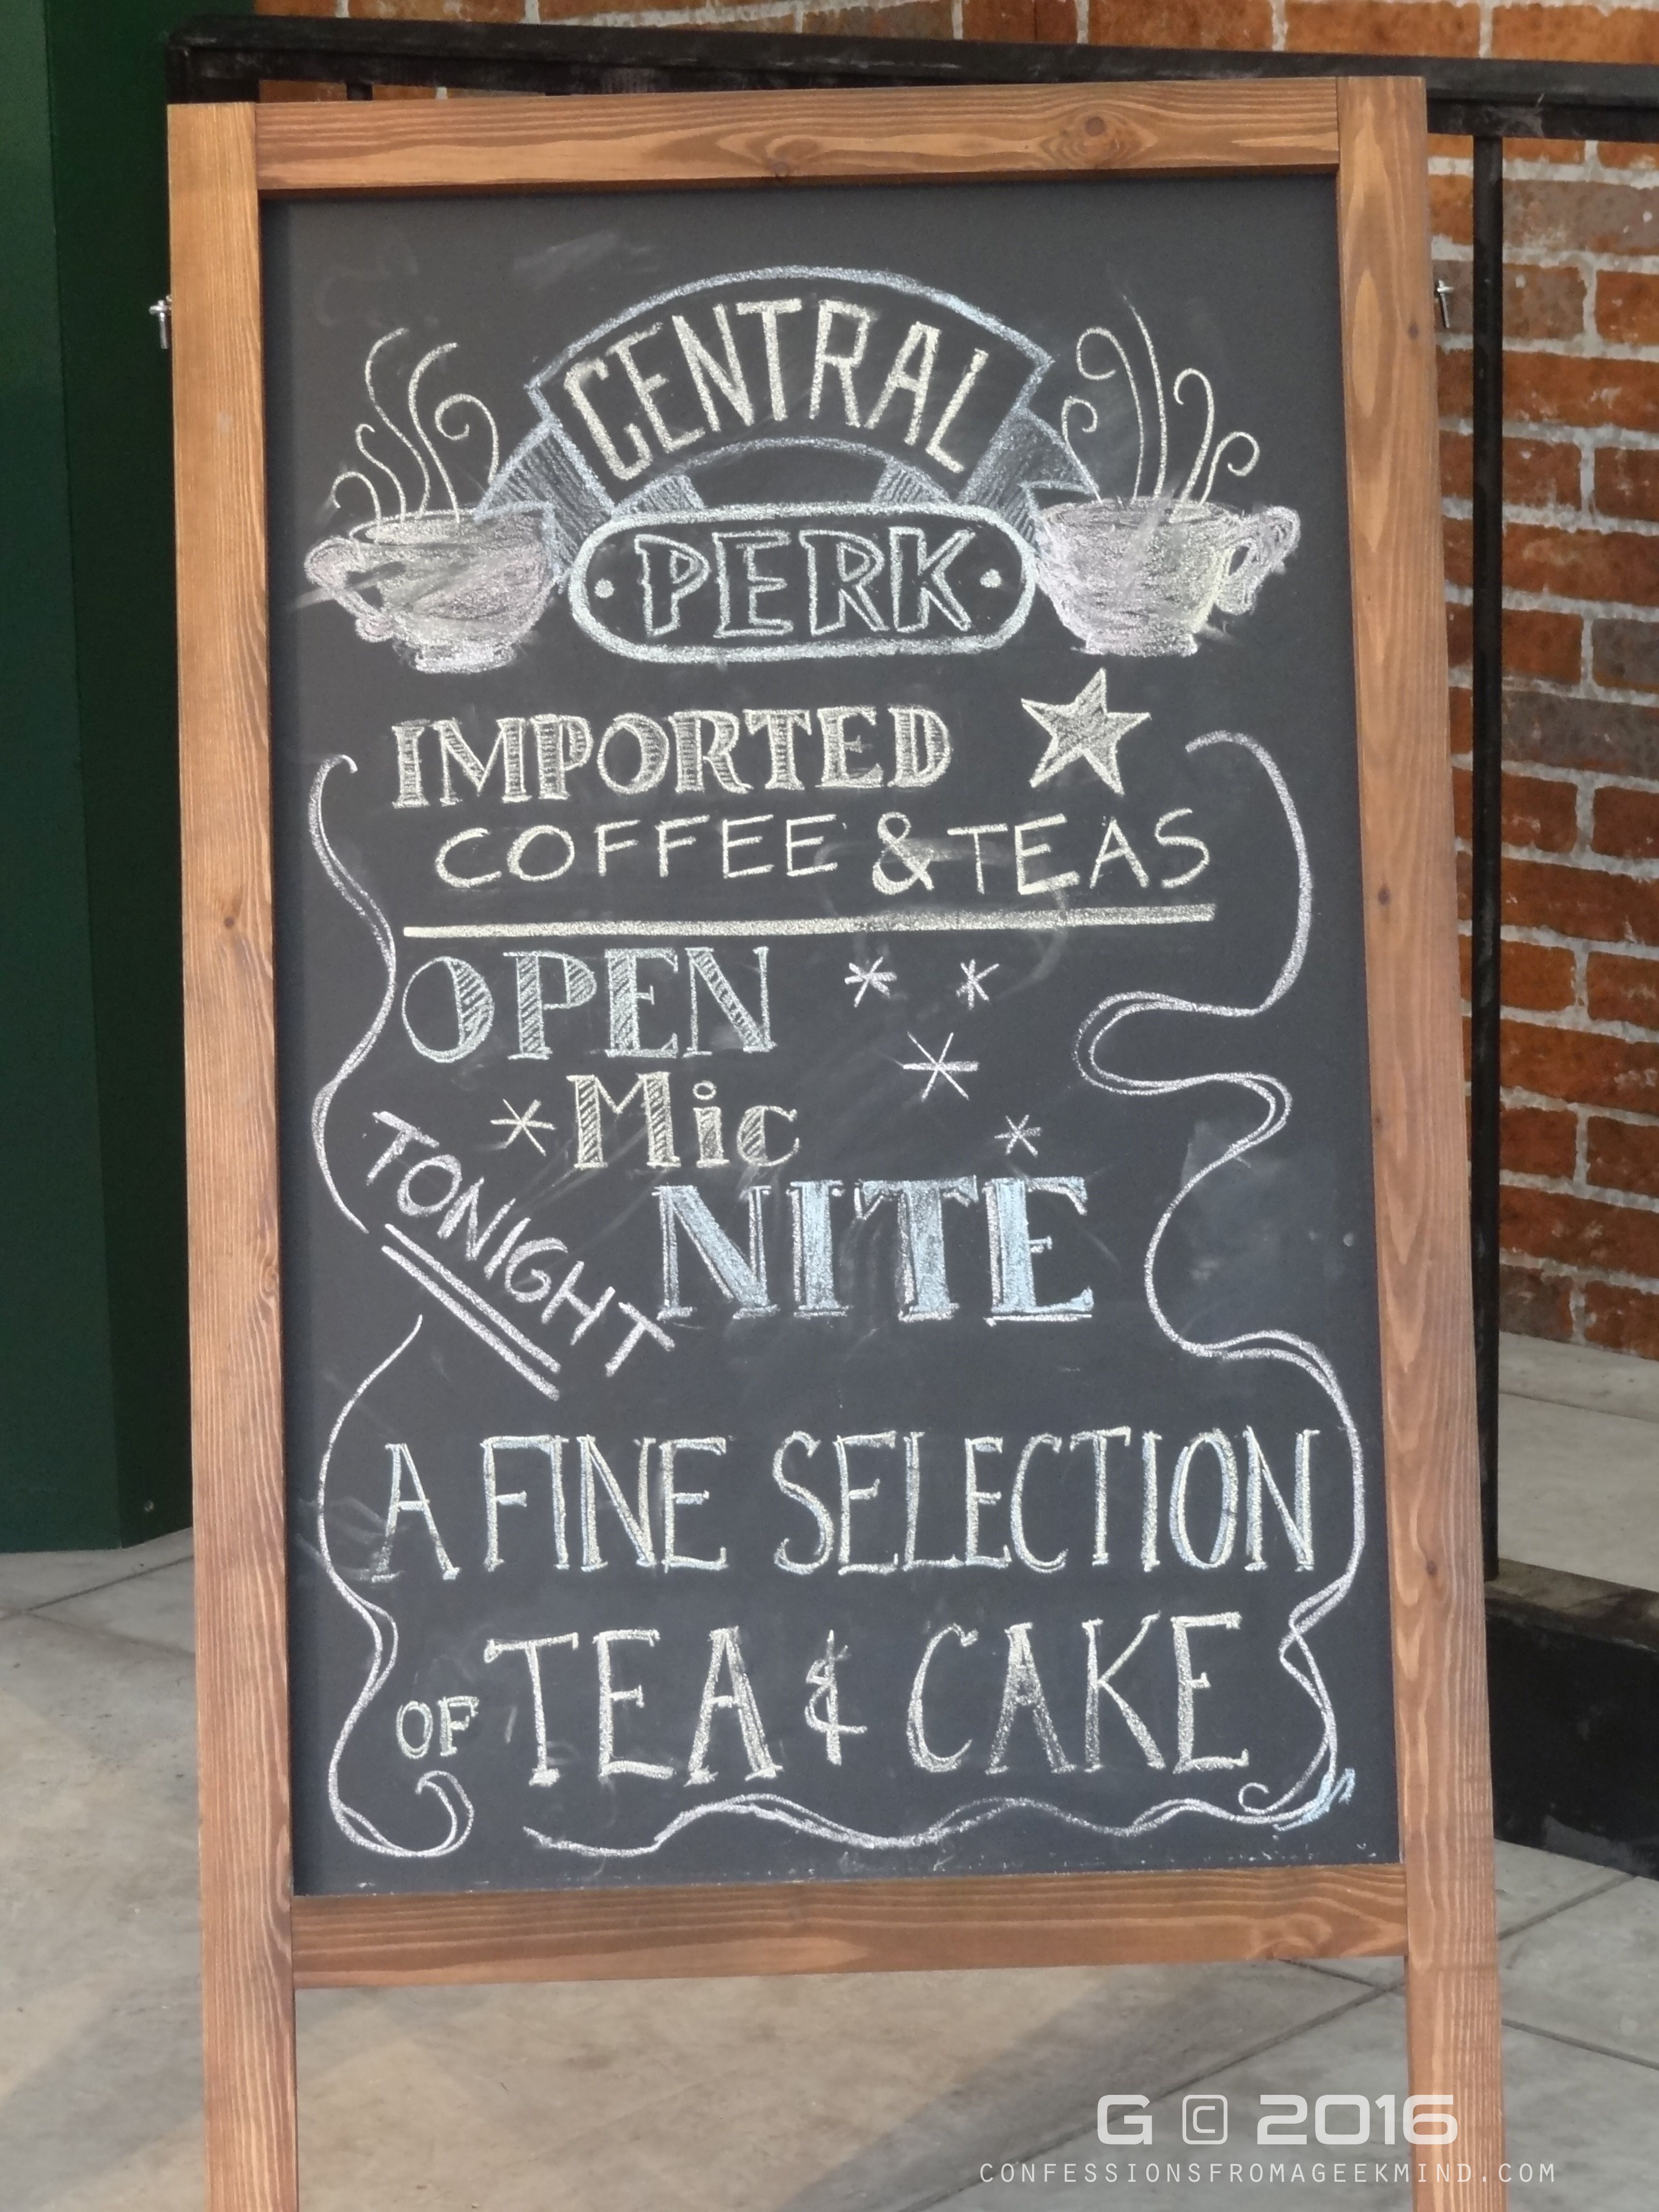 CENTRAL
PERK
IMPORTED
COFFEE & TEAS
OPEN
Mic
NITE
TONIGHT
A FINE SELECTION
OF TEA & CAKE
G © 2016
CONFESSIONSFROMAGEEKMIND.COM